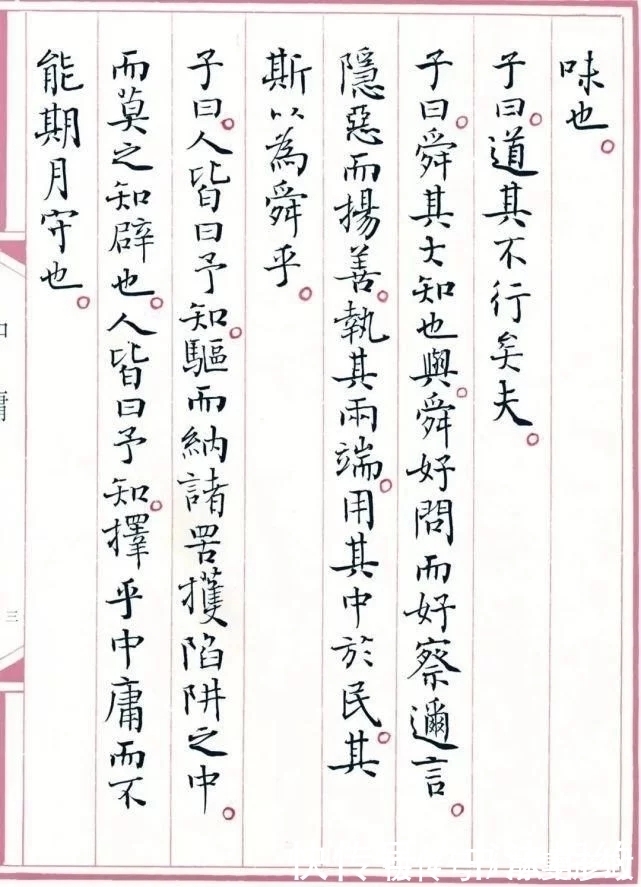 味也。
子曰。道其不行矣夫。
子曰。舜其大知也與。舜好問而好察邇言。
隱惡而揚善。執其兩端。用其中於民。其
斯以為舜乎。
子曰。人皆曰予知。驅而納諸罟擭陷阱之中。
而莫之知辟也。人皆曰予知。擇乎中庸而不
能期月守也。
三